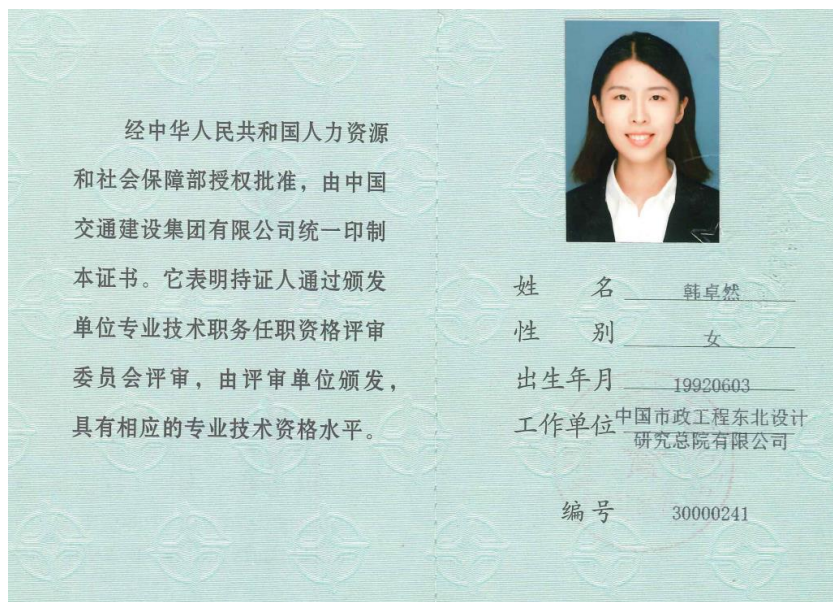 经中华人民共和国人力资源
和社会保障部授权批准，由中国
交通建设集团有限公司统一印制
本证书。它表明持证人通过颁发
单位专业技术职务任职资格评审
委员会评审，由评审单位颁发，
具有相应的专业技术资格水平。
姓 名 韩卓然
性 别 女
出生年月 19920603
工作单位 中国市政工程东北设计
研究总院有限公司
编号 30000241